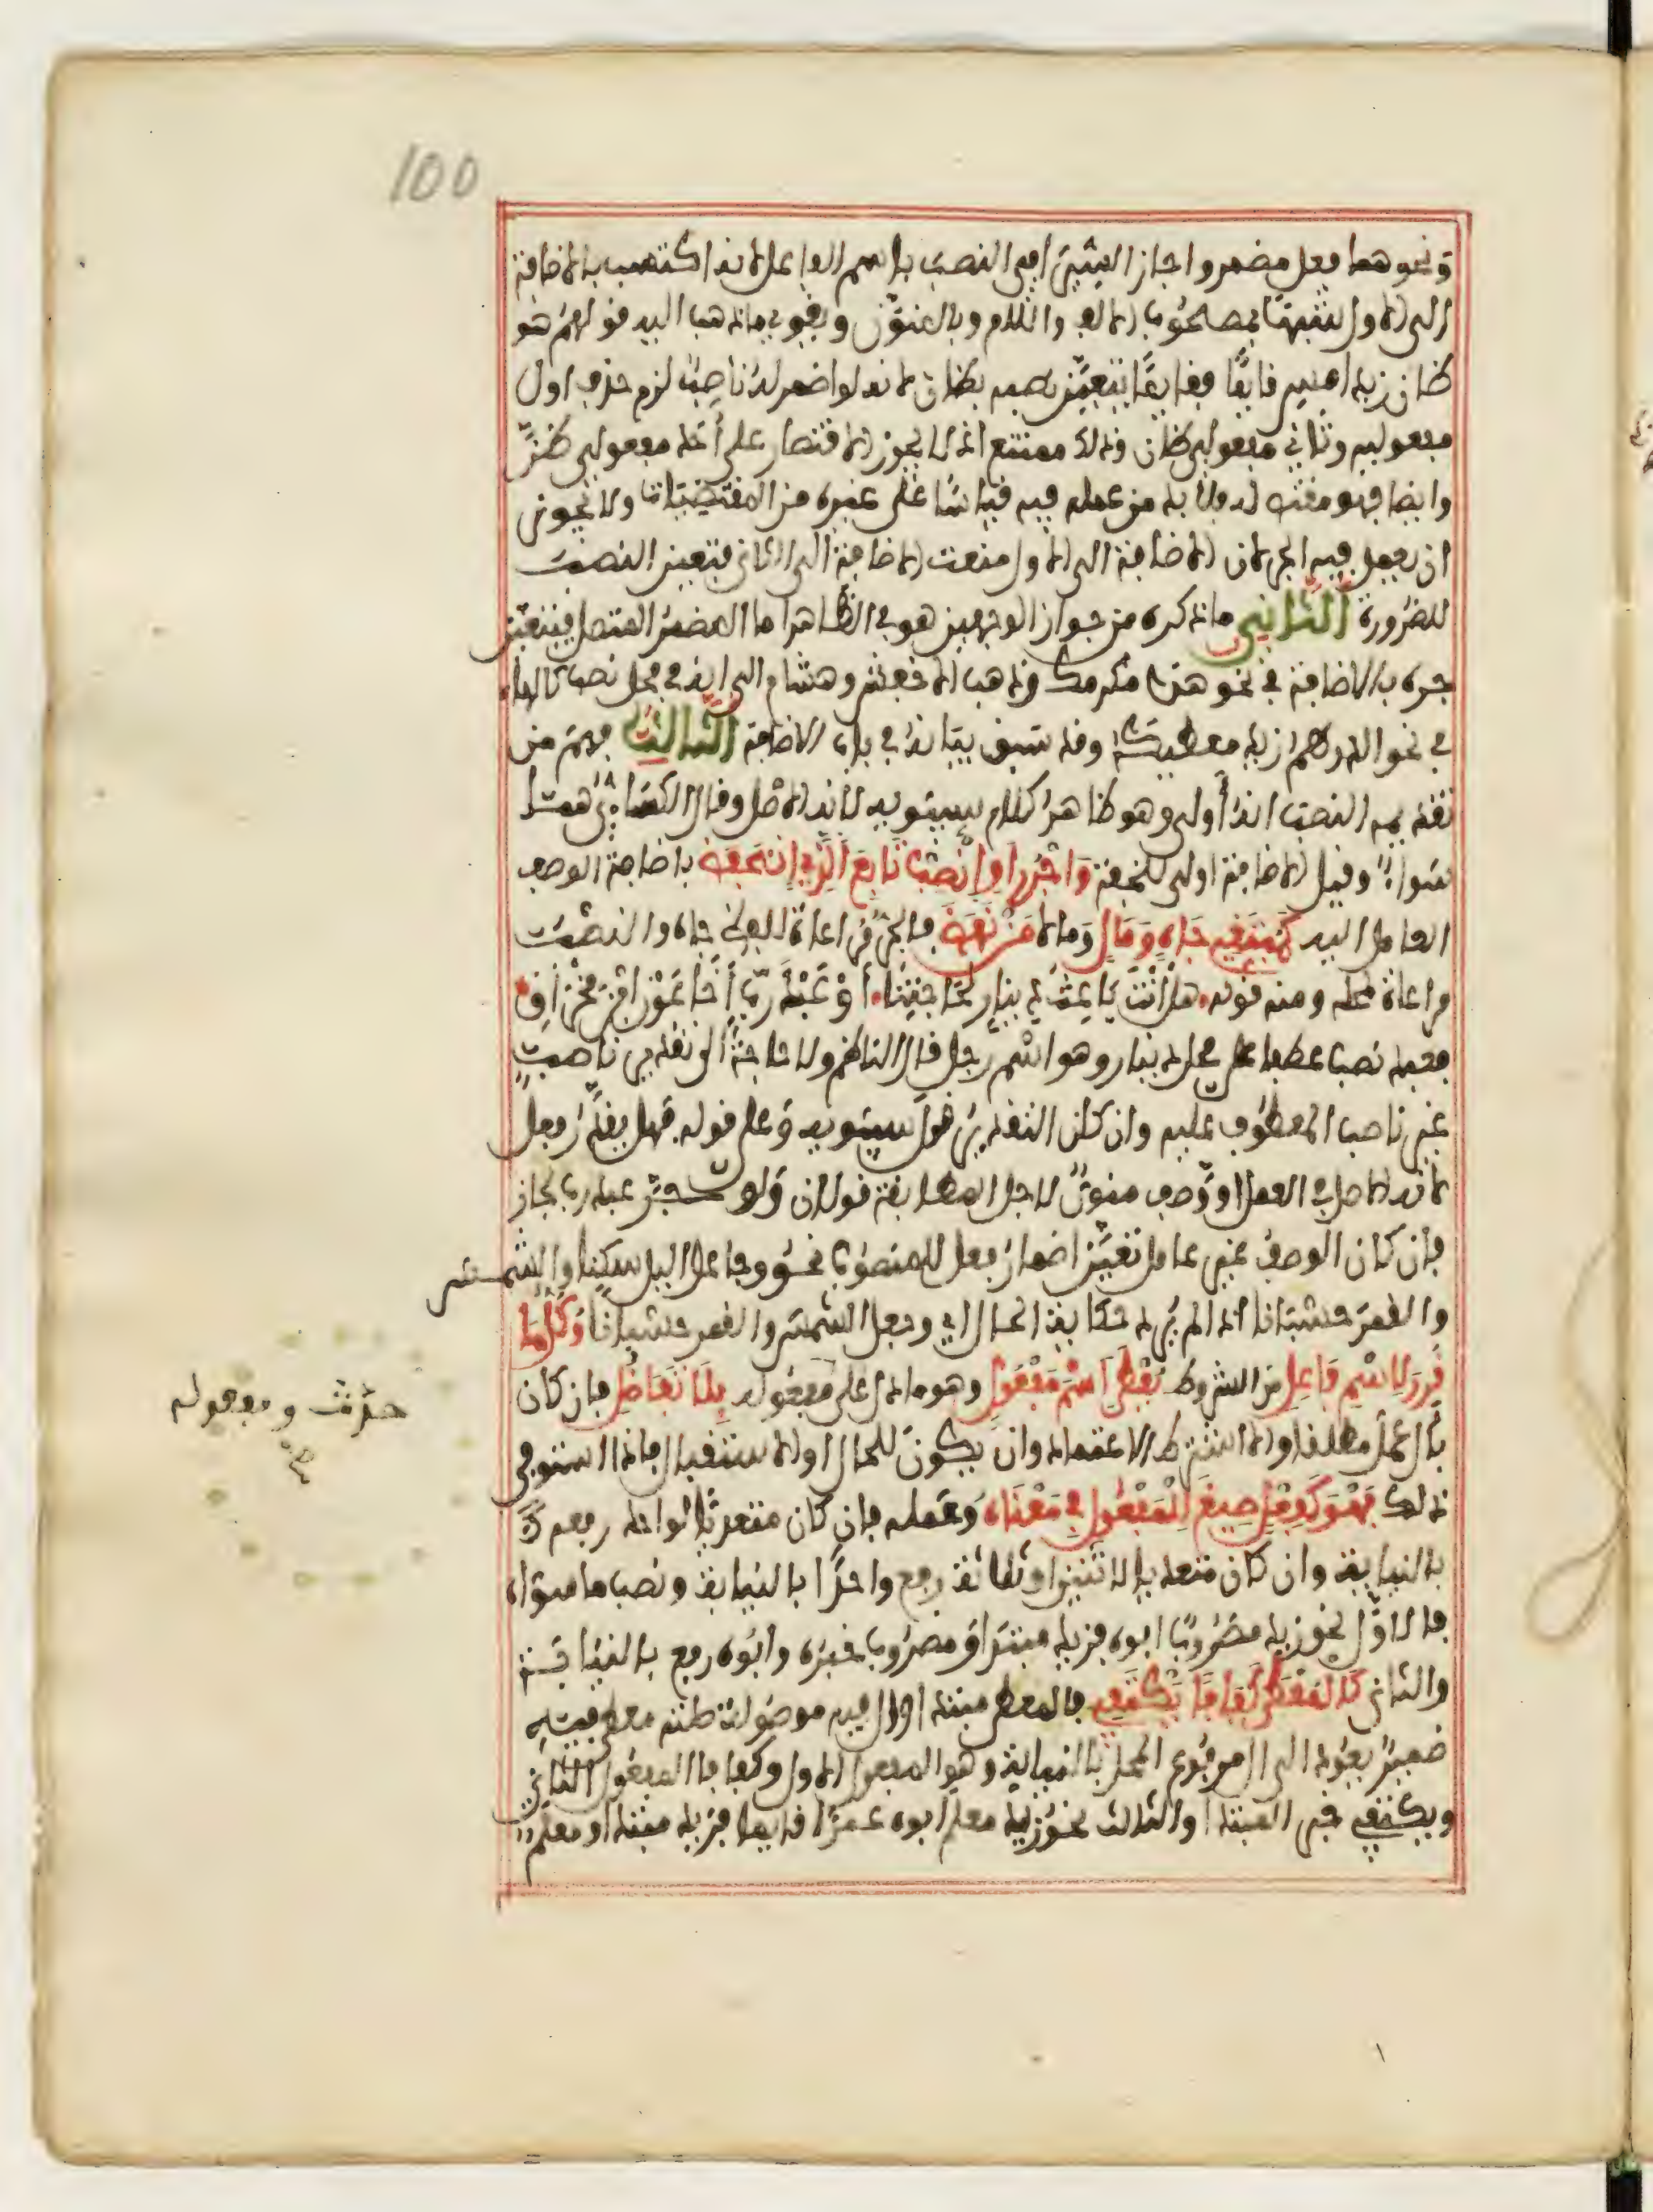 100
ونحوهما فعل مضمر واجاز السيرافي النصب باسم الفاعل لانه اكتسب بالاضافة
الى الاول شبها بمصحوب الالف واللام وبالمنون ويقوي ماذهب اليه قولهم هو
ظان زيد امس قايما فقايما يتعين نصبه بظان لانه لو اضمر له ناصب لزم حذف اول
مفعوليه وثاني مفعولي ظان وذلك ممتنع اذ لا يجوز الاقتصار على احد مفعولي ظن
وايضا فهو مقتض له ولا بد من عمله فيه قياسا على غيره من المقتضيات ولا يجوز
ان يعمل فيه الجر لان الاضافة الى الاول منعت الاضافة الى الثاني فتعين النصب
للضرورة الثاني ماذكره من جواز الوجهين هو في الظاهر اما المضمر المتصل فيتعين
جره بالاضافة في نحو هذا مكرمك وذهب الاخفش وهشام الى انه في محل نصب كالهاء
في نحو الدرهم زيد معطيكه وقد سبق بيانه في باب الاضافة الثالث فهم من
تقديمه النصب انه أولى وهو ظاهر كلام سيبويه لانه الاصل وقال الكسائي هما
سواء وقيل الاضافة اولى للخفة واجرر او انصب تابع الذي انخفض باضافة الوصف
العامل اليه كمبتغي جاه ومال ومالا من نهض فالجر مراعاة للفظ جاه والنصب
مراعاة محله ومنه قوله هل أنت باعث دينار لحاجتنا أو عبد رب أخا عون ابن مخراق
فعبد نصب عطفا على محل دينار وهو اسم رجل قال الناظم ولا حاجة الى تقدير ناصب
غير ناصب المعطوف عليه وان كان التقدير قول سيبويه وعلى قوله فهل يقدر فعل
لانه الاصل في العمل او وصف منون لاجل المطابقة قولان ولو جر عبد رب لجاز
فان كان الوصف غير عامل تعين اضمار فعل للمنصوب نحو وجاعل اليل سكنا والشمس
والقمر حسبانا اذا لم يرد حكاية الحال اي وجعل الشمس والقمر حسبانا وكل ما
قرر لاسم فاعل من الشروط يعطى اسم مفعول وهو مادل على مفعوله بلا تفاضل فان كان
بأل عمل مطلقا والا اشترط الاعتماد وان يكون للحال او الاستقبال فاذا استوفى
ذلك فهو كفعل صيغ للمفعول في معناه وعمله فان كان متعديا لواحد رفعه
بالنيابة وان كان متعديا لاثنين او ثلاثة رفع واحدا بالنيابة ونصب ما سواه
فالاول نحو زيد مضروب ابوه فزيد مبتدأ ومضروب خبره وابوه رفع بالنيابة
والثاني كالمعطى كفافا يكتفي فالمعطى مبتدا وال فيه موصولة صلته معطى وفيه
ضمير يعود الى ال مرفوع المحل بالنيابة وهو المفعول الاول وكفافا المفعول الثاني
ويكتفي خبر المبتدا والثالث نحو زيد معلم ابوه عمرا قايما فزيد مبتدا ومعلم
حدث ومفعوله